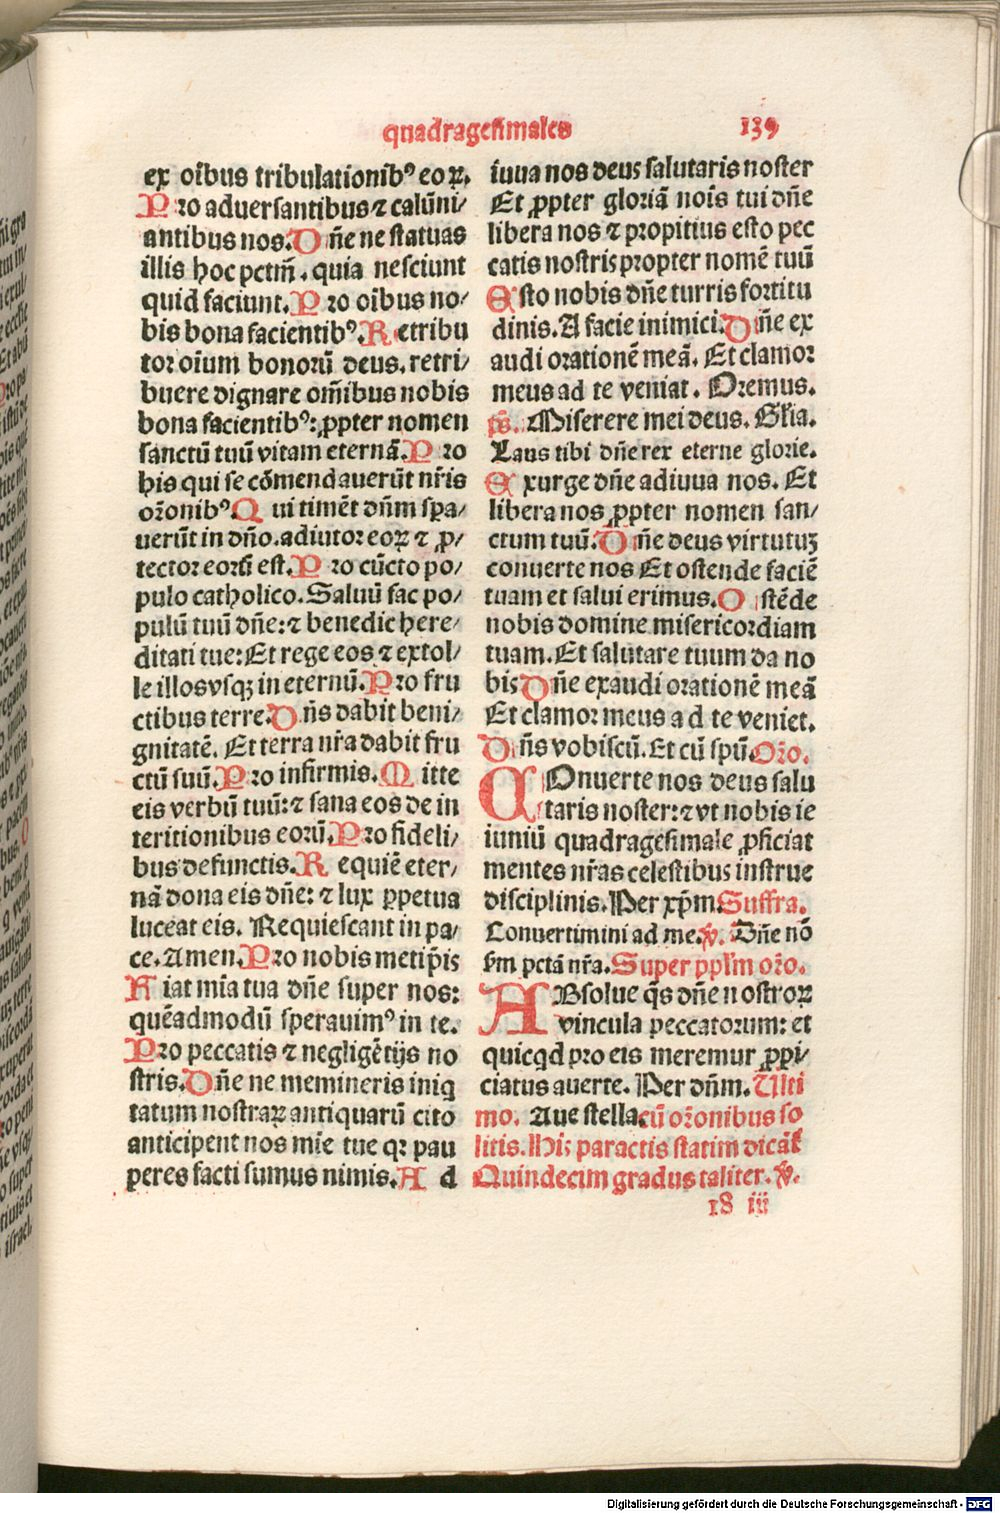 quadragesimales 139
ex oībus tribulationibꝰ eoꝝ.
Pro aduersantibus ⁊ calūni/
antibus nos. Dn̄e ne statuas
illis hoc pctm̄. quia nesciunt
quid faciunt. Pro oībus no/
bis bona facientibꝰ. Retribu
tor oīum bonorū deus. retri/
buere dignare om̄ibus nobis
bona facientibꝰ: ꝓpter nomen
sanctū tuū vitam eternā. Pro
his qui se cōmendauerūt nr̄is
or̄onibꝰ. Qui timēt dn̄m spa/
uerūt in dn̄o. adiutor eoꝝ ⁊ ꝓ/
tector eorū est. Pro cūcto po/
pulo catholico. Saluū fac po/
pulū tuū dn̄e: ⁊ benedic here/
ditati tue: Et rege eos ⁊ extol/
le illos vsqꝫ in eternū. Pro fru
ctibus terre. Dn̄s dabit beni/
gnitatē. Et terra nr̄a dabit fru
ctū suū. Pro infirmis. Mitte
eis verbū tuū: ⁊ sana eos de in
teritionibus eorū. Pro fideli/
bus defunctis. Requiē eter/
nā dona eis dn̄e: ⁊ lux ꝑpetua
luceat eis. Requiescant in pa/
ce. Amen. Pro nobis metip̄is
Fiat mīa tua dn̄e super nos:
quēadmodū sperauimꝰ in te.
Pro peccatis ⁊ negligētijs no
stris. Dn̄e ne memineris iniq
tatum nostraꝝ antiquarū cito
anticipent nos mīe tue qꝛ pau
peres facti sumus nimis. Ad
iuua nos deus salutaris noster
Et ꝓpter gloriā nois̄ tui dn̄e
libera nos ⁊ propitius esto pec
catis nostris propter nomē tuū
Esto nobis dn̄e turris fortitu
dinis. A facie inimici. Dn̄e ex
audi orationē meā. Et clamor
meus ad te veniat. Oremus.
ps̄. Miserere mei deus. Gl̄ia.
Laus tibi dn̄e rex eterne glorie.
Exurge dn̄e adiuua nos. Et
libera nos ꝓpter nomen san/
ctum tuū. Dn̄e deus virtutuꝫ
conuerte nos Et ostende faciē
tuam et salui erimus. Ostēde
nobis domine misericordiam
tuam. Et salutare tuum da no
bis Dn̄e exaudi orationē meā
Et clamor meus ad te veniet.
Dn̄s vobiscū. Et cū spū. Or̄o.
COnuerte nos deus salu
taris noster: ⁊ vt nobis ie
iuniū quadragesimale ꝓficiat
mentes nr̄as celestibus instrue
disciplinis. Per xp̄m. Suffra.
Conuertimini ad me. v̄. Dn̄e nō
s̄m pctā nr̄a. Super ppl̄m or̄o.
ABsolue qs̄ dn̄e nostroꝝ
vincula peccatorum: et
quicqd pro eis meremur ꝓpi/
ciatus auerte. Per dn̄m. Ulti
mo. Aue stella cū or̄onibus so
litis. His paractis statim dicāt̄
Quindecim gradus taliter. v̄.
18 iii
Digitalisierung gefördert durch die Deutsche Forschungsgemeinschaft - DFG